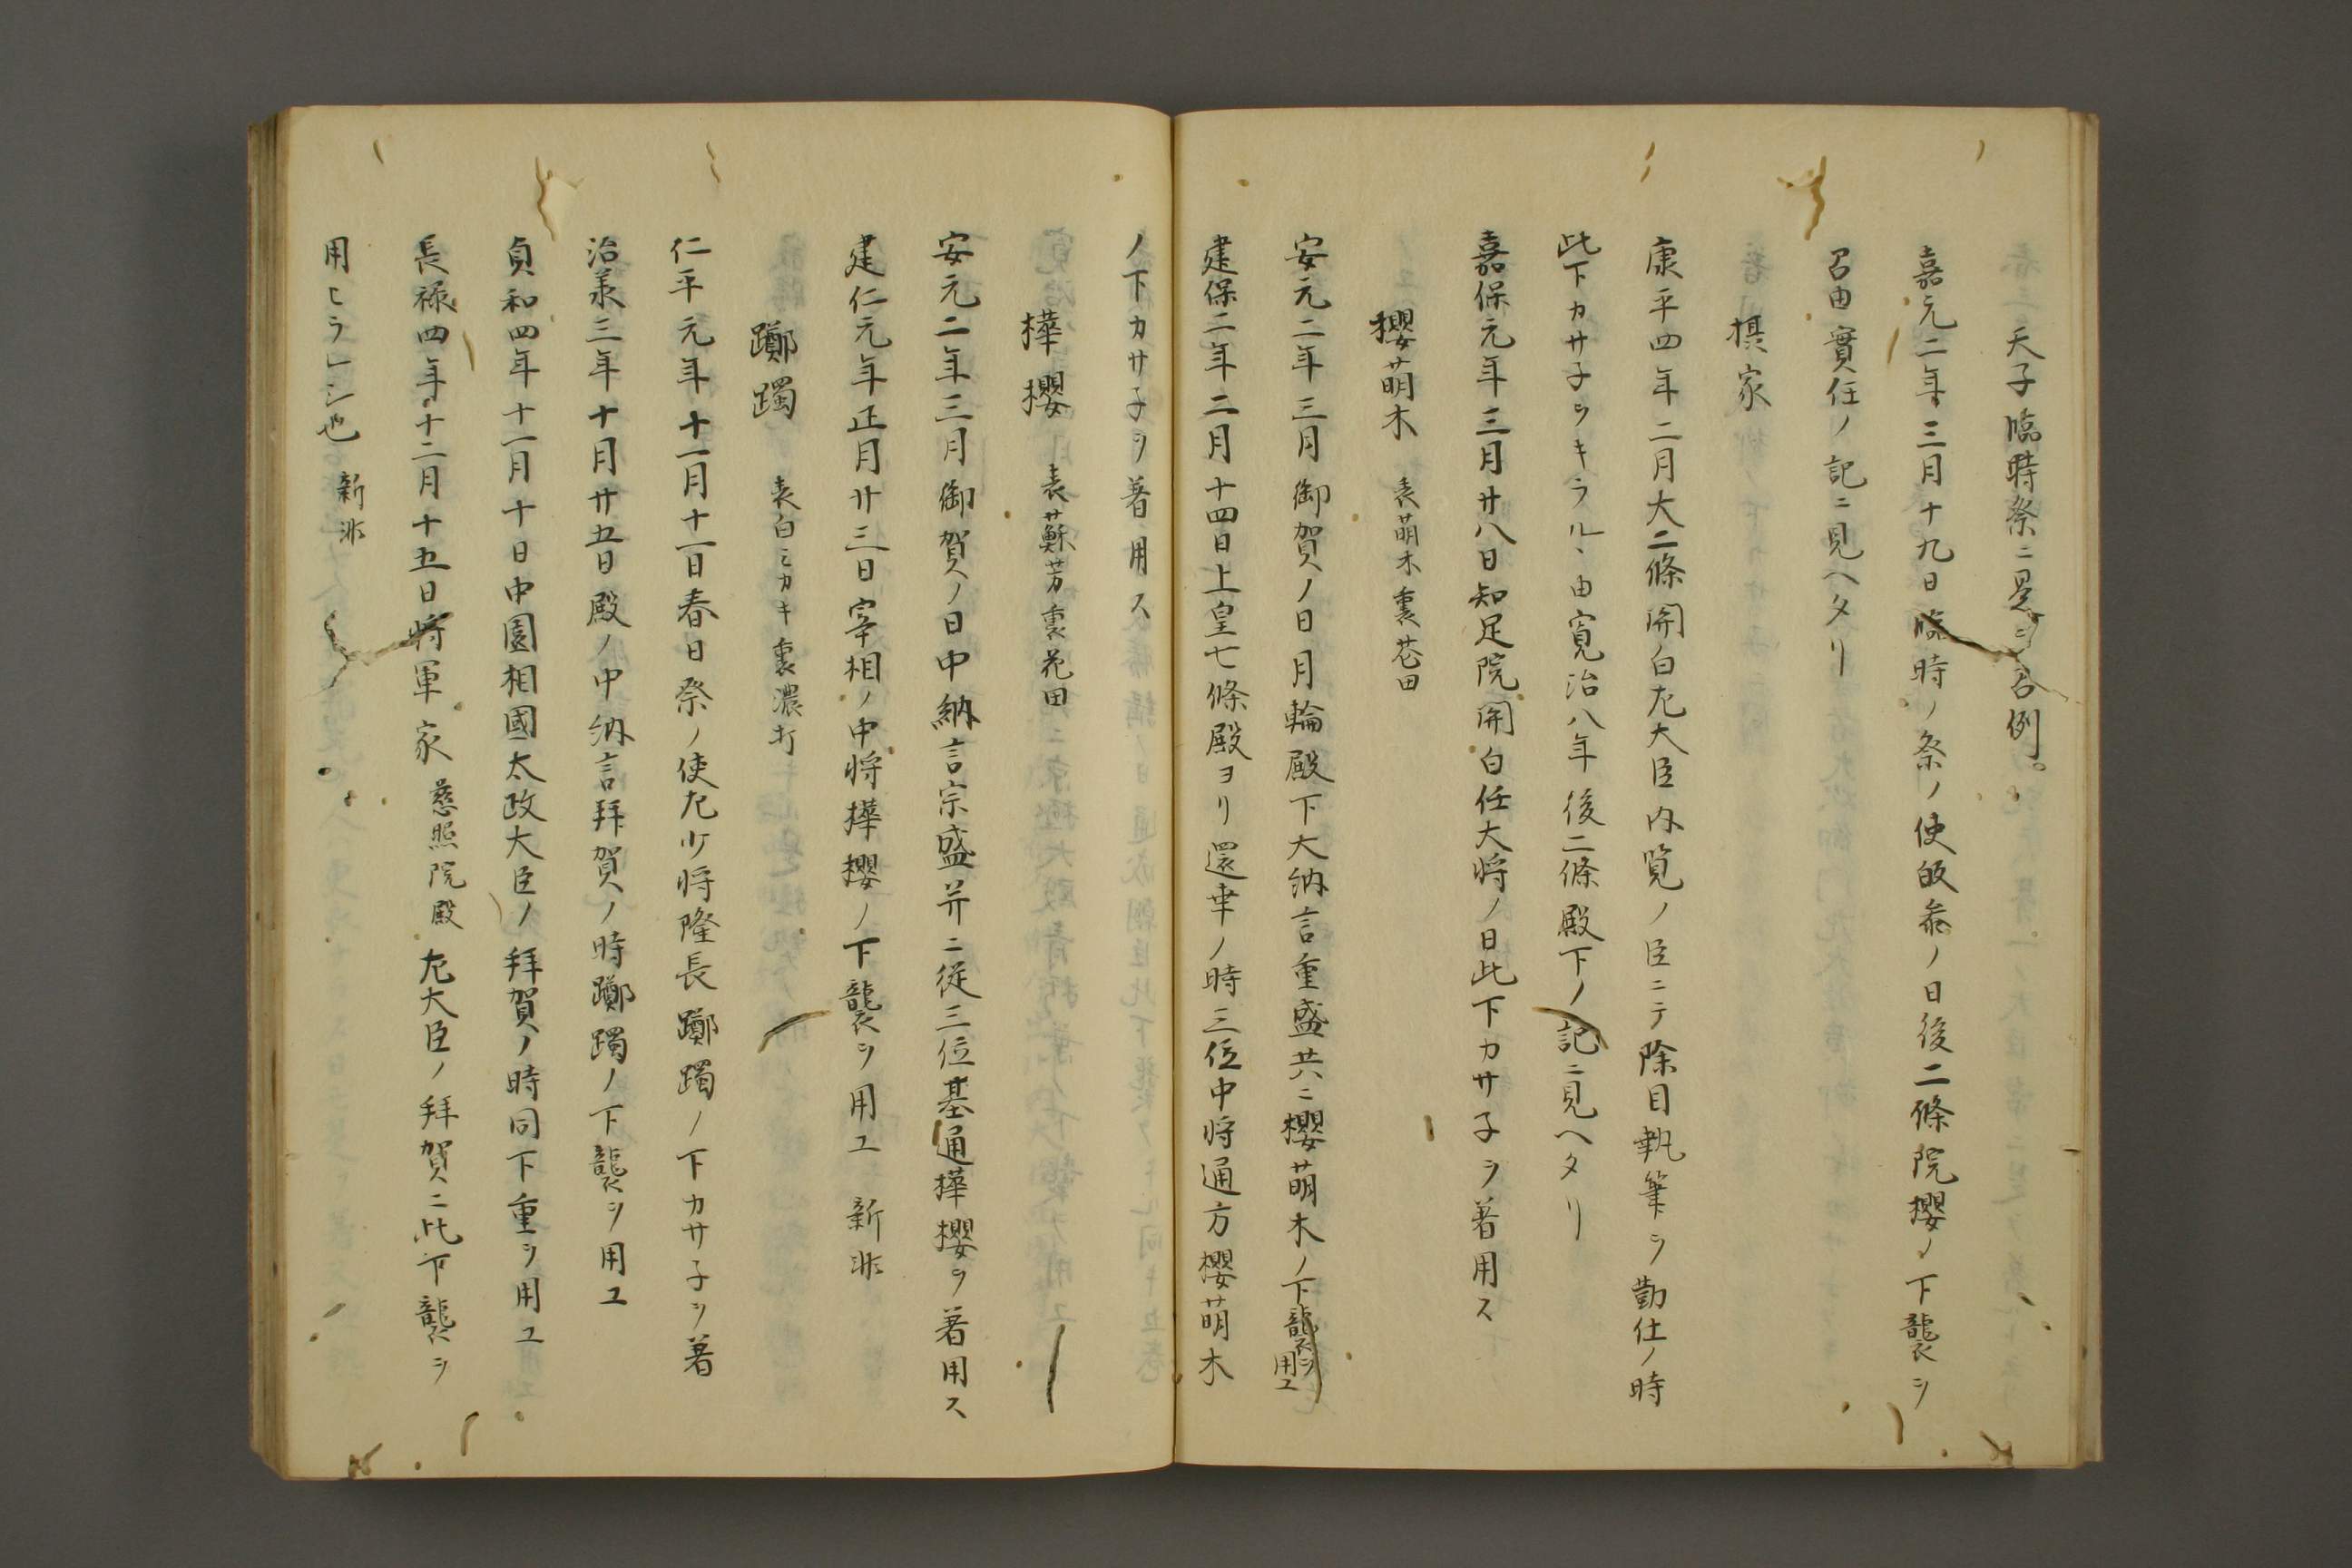 天子臨時祭ニ是ヲ召例
嘉元二年三月十九日臨時ノ祭ノ使皈参ノ日後二條院櫻ノ下襲ヲ
召由實任ノ記ニ見ヘタリ
摂家
康平四年二月大二條関白左大臣内覧ノ臣ニテ除目執筆ヲ勤仕ノ時
此下カサ子ヲキラルヽ由寛治八年後二條殿下ノ記ニ見ヘタリ
嘉保元年三月廿八日知足院関白任大将ノ日此下カサ子ヲ着用ス
櫻萌木 表萌木裏花田
安元二年三月御賀ノ日月輪殿下大納言重盛共ニ櫻萌木ノ下襲ヲ用ユ
建保二年二月十四日上皇七條殿ヨリ還幸ノ時三位中将通方櫻萌木
ノ下カサ子ヲ着用ス
樺櫻 表蘇芳裏花田
安元二年三月御賀ノ日中納言宗盛并ニ従三位基通樺櫻ヲ着用ス
建仁元年正月廿三日宰相ノ中将樺櫻ノ下襲ヲ用ユ 新
躑躅 表白ミカキ裏濃打
仁平元年十一月十一日春日祭ノ使左少将隆長躑躅ノ下カサ子ヲ着
治承三年十月廿五日殿ノ中納言拝賀ノ時躑躅ノ下襲ヲ用ユ
貞和四年十一月十日中園相國太政大臣ノ拝賀ノ時同下重ヲ用ユ
長禄四年十二月十五日将軍家 慈照院殿 左大臣ノ拝賀ニ此下襲ヲ
用ヒラレシ也 新